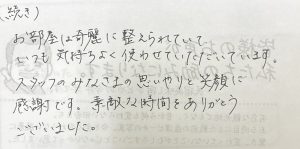 (続き)
お部屋は綺麗に整えられていて
いつも気持ちよく使わせていただいています。
スタッフのみなさまの思いやりと笑顔に
感謝です。素敵な時間をありがとう
ございました。